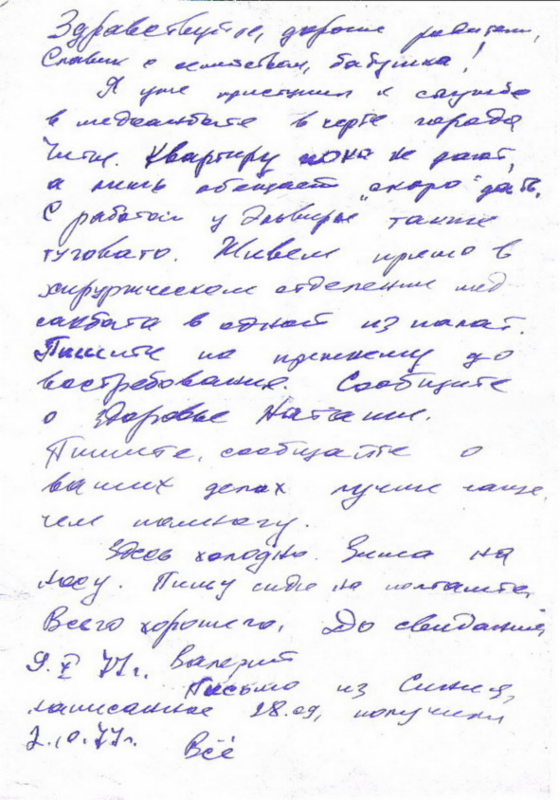 Здравствуйте, дорогие родители,
Славик с семейством, бабушка!
Я уже приступил к службе
в медсанбате в черте города
Читы. Квартиру пока не дают,
а лишь обещают "скоро" дать.
С работой у Эльвиры также
туговато. Живем прямо в
хирургическом отделении мед
санбата в одной из палат.
Пишите по прежнему до
востребования. Сообщите
о здоровье Наташи.
Пишите, сообщайте о
ваших делах лучше чаще,
чем помногу.
Здесь холодно. Зима на
носу. Пишу сидя на почтамте.
Всего хорошего. До свидания,
9.X 77г. Валерий
Письмо из
написанное 28.09, получили
2.10.77г. Всё